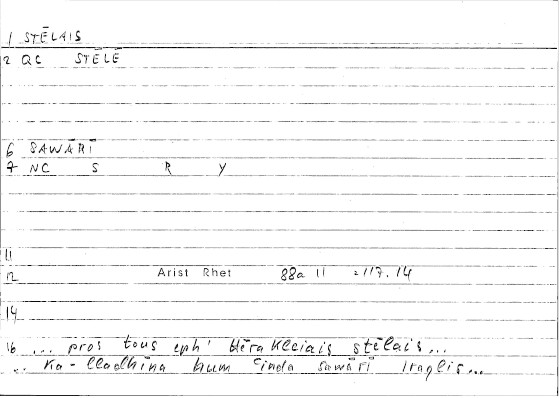 1 STĒLAIS
2 QC STĒLĒ
6 SAWĀRĪ
7 NC S R Y
11
12 Arist Rhet 88a 11 = 117.14
14
16 ... pros tous eph' Hērakleiais stēlais...
... ka-lladhīna hum ʿinda sawārī Iraqlis...